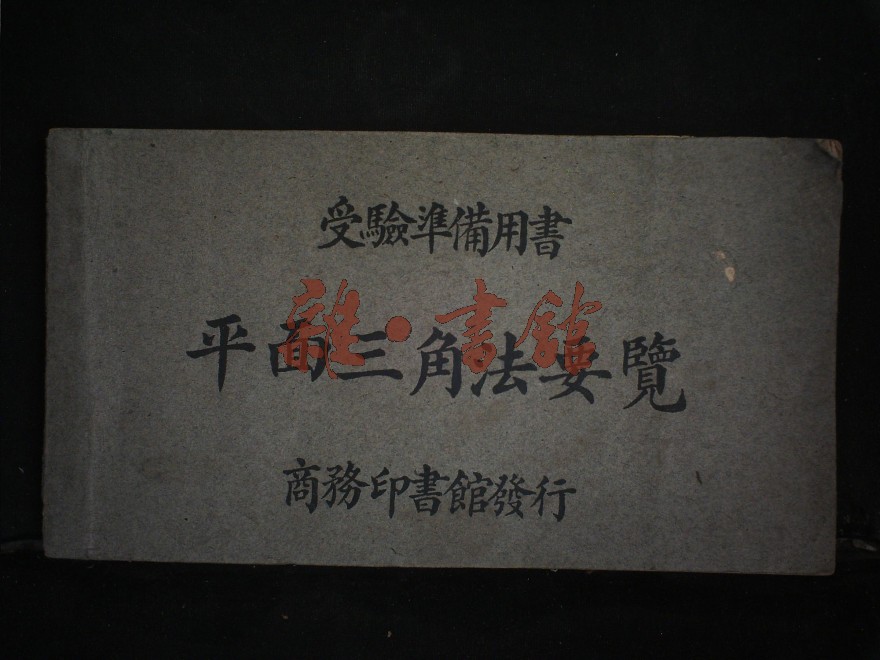 受驗準備用書
平面三角法要覽
書館
商務印書館發行